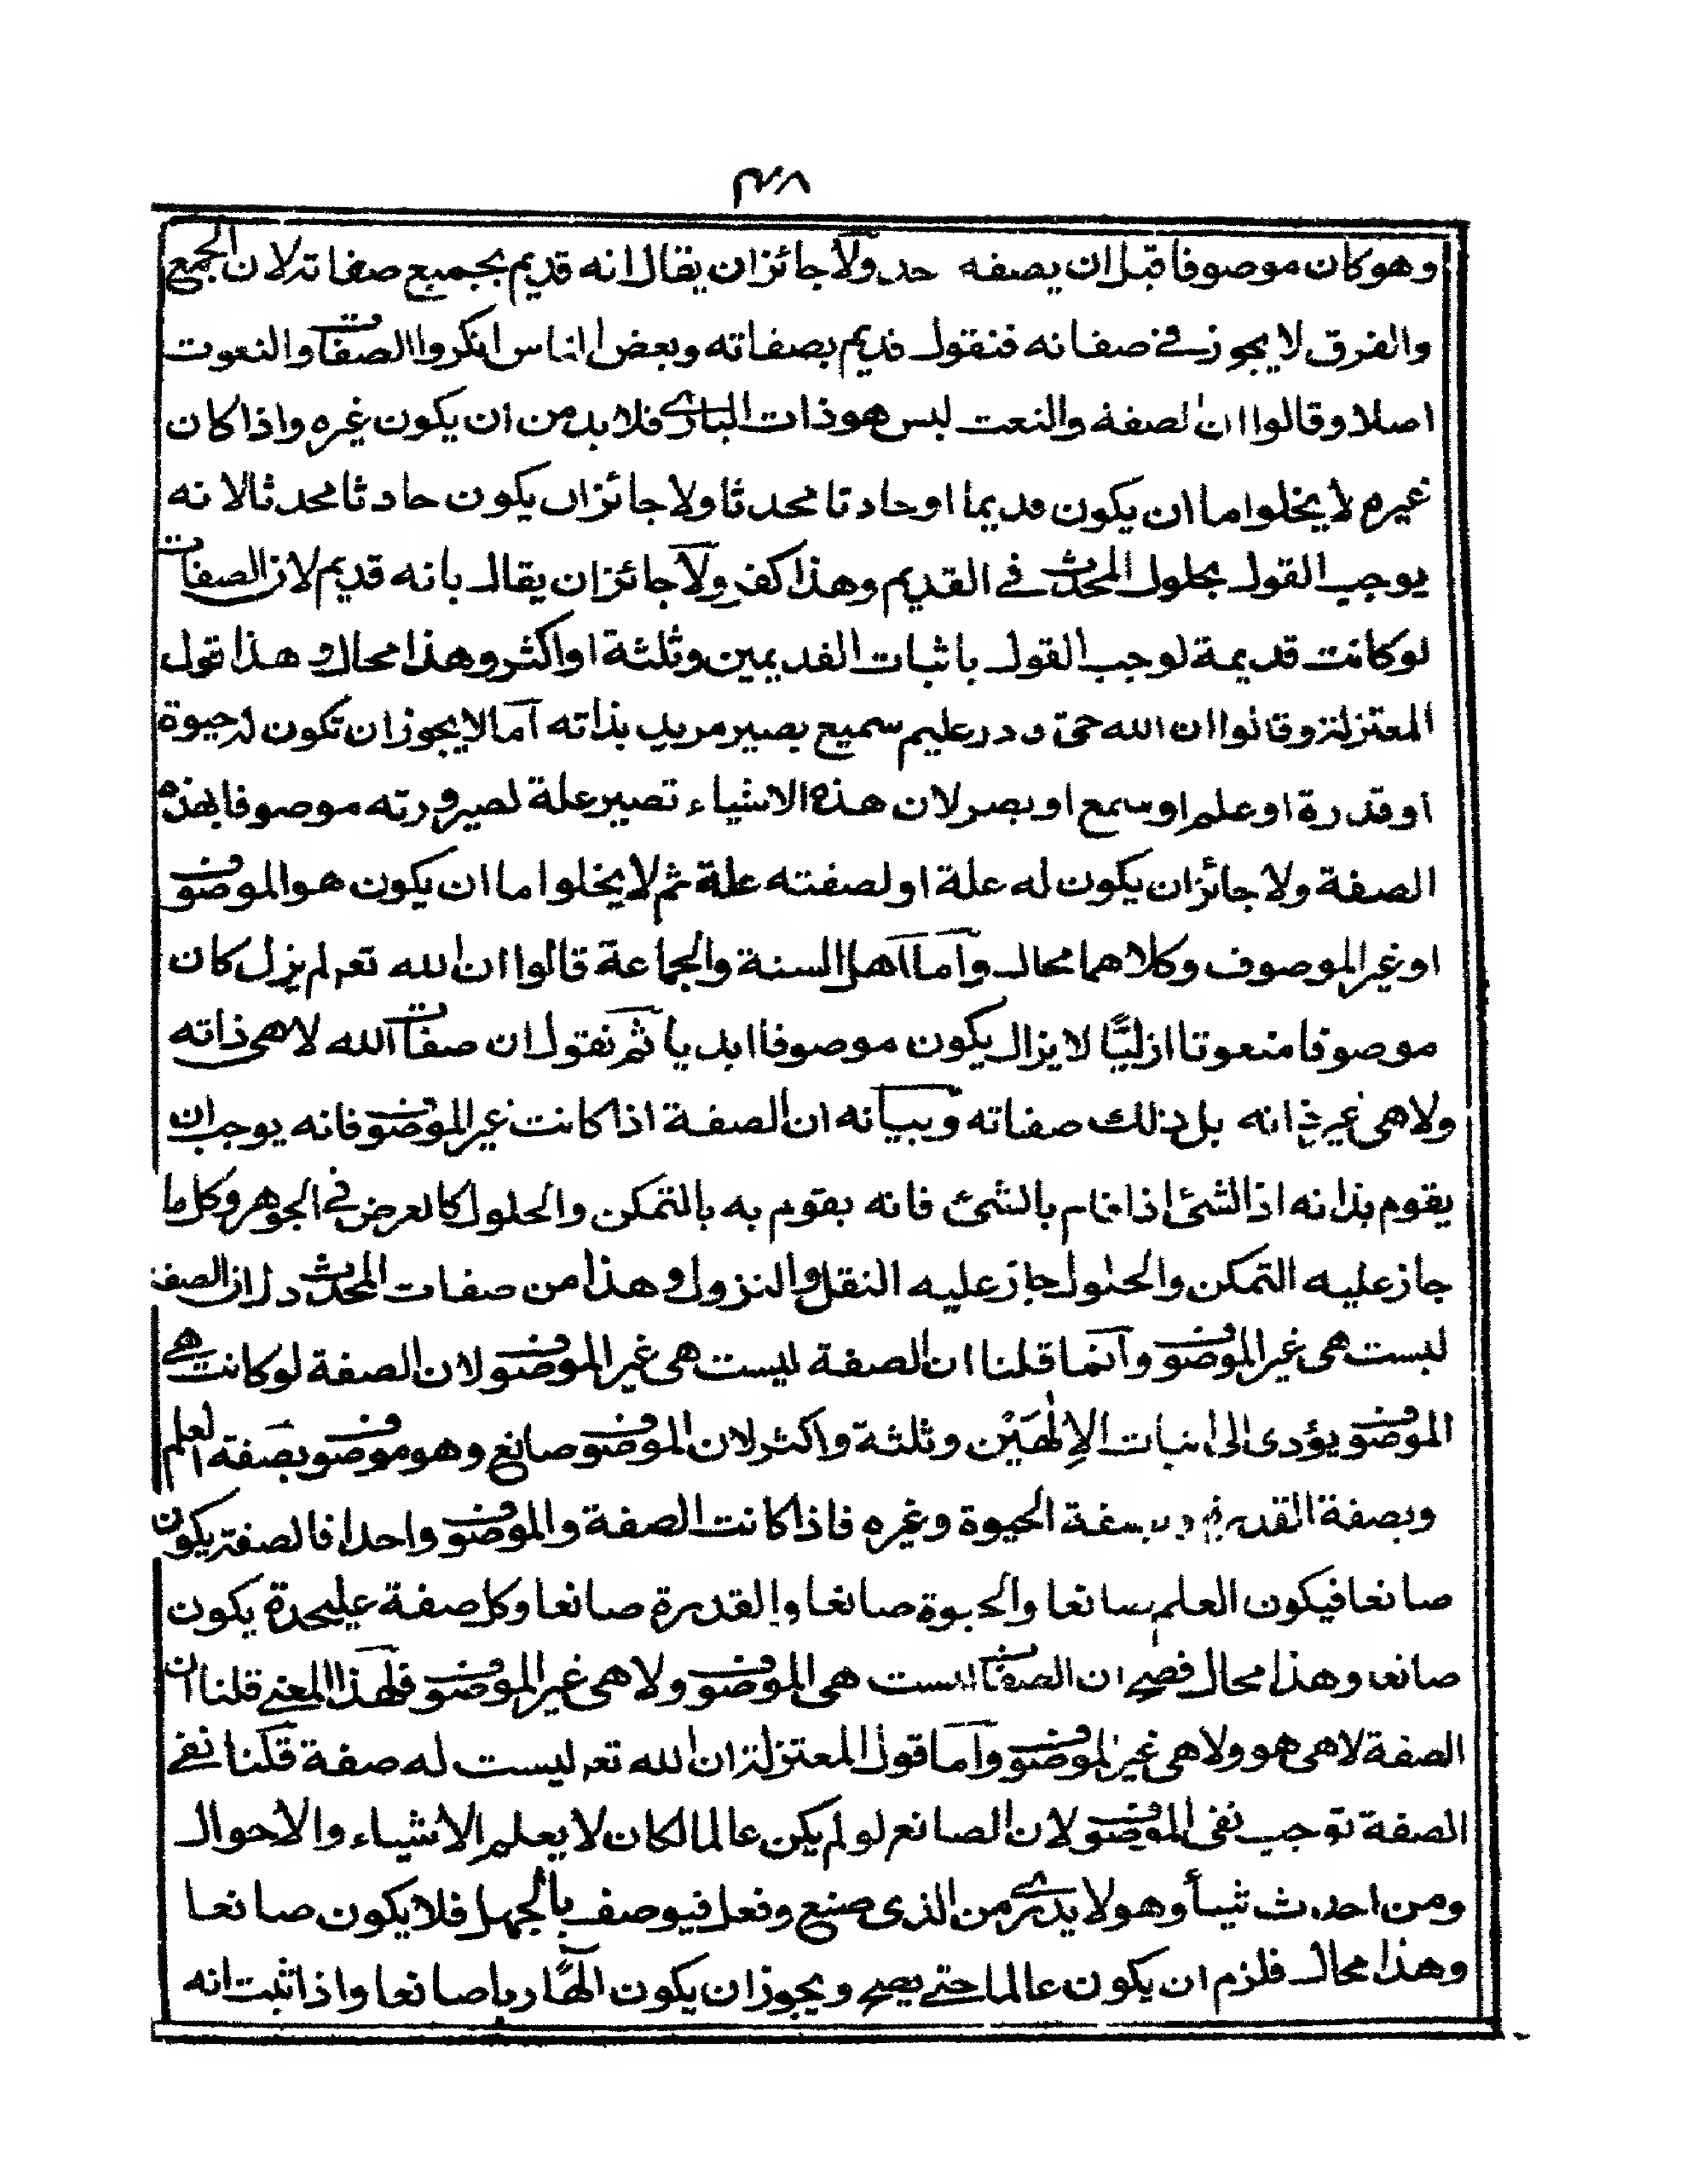 ٣٨
وهو كان موصوفا قبل ان يصفه حد ولا جائز ان يقال انه قديم بجميع صفاته لان الجمع
والفرق لا يجوز في صفاته فنقول قديم بصفاته وبعض الناس انكروا الصفات والنعوت
اصلا وقالوا ان الصفة والنعت ليس هو ذات البارى فلا بد من ان يكون غيره واذا كان
غيره لا يخلوا ما ان يكون قديما او حادثا محدثا ولا جائز ان يكون حادثا محدثا لانه
يوجب القول بحلول المحدث في القديم وهذا كفر ولا جائز ان يقال بانه قديم لان الصفات
لو كانت قديمة لوجب القول باثبات القديمين وثلثة او اكثر وهذا محال وهذا قول
المعتزلة وقالوا ان الله حى قادر عليم سميع بصير مريد بذاته اما لا يجوز ان تكون له حيوة
او قدرة او علم او سمع او بصر لان هذه الاشياء تصير علة لصيرورته موصوفا بهذه
الصفة ولا جائز ان يكون له علة او لصفته علة ثم لا يخلوا ما ان يكون هو الموصوف
او غير الموصوف وكلاهما محال واما اهل السنة والجماعة قالوا ان الله تعـ لم يزل كان
موصوفا منعوتا ازليًّا لا يزال يكون موصوفا ابديا ثم نقول ان صفات الله لا هى ذاته
ولا هى غير ذاته بل ذلك صفاته وبيانه ان الصفة اذا كانت غير الموصوف فانه يوجب ان
يقوم بذاته اذ الشئ اذا قام بالشئ فانه يقوم به بالتمكن والحلول كالعرض في الجوهر وكل ما
جاز عليه التمكن والحلول جاز عليه النقل والنزول وهذا من صفات المحدث دل ان الصفة
ليست هى غير الموصوف وانما قلنا ان الصفة ليست هى غير الموصوف لان الصفة لو كانت هى
الموصوف يؤدى الى اثبات الإلٰهَيْن وثلثة واكثر لان الموصوف صانع وهو موصوف بصفة العلم
وبصفة القدرة وبصفة الحيوة وغيره فاذا كانت الصفة والموصوف واحدا فالصفة يكون
صانعا فيكون العلم صانعا والحيوة صانعا والقدرة صانعا وكل صفة عليحدة يكون
صانعا وهذا محال فصح ان الصفات ليست هى الموصوف ولا هى غير الموصوف فلهذا المعنى قلنا ان
الصفة لا هى هو ولا هى غير الموصوف واما قول المعتزلة ان الله تعـ ليست له صفة قلنا نفي
الصفة توجب نفى الموصوف لان الصانع لو لم يكن عالما لكان لا يعلم الاشياء والاحوال
ومن احدث شيأ وهو لا يدرى من الذى صنع وفعل فيوصف بالجهل فلا يكون صانعا
وهذا محال فلزم ان يكون عالما حتى يصح ويجوز ان يكون الهًا ربا صانعا واذا ثبت انه